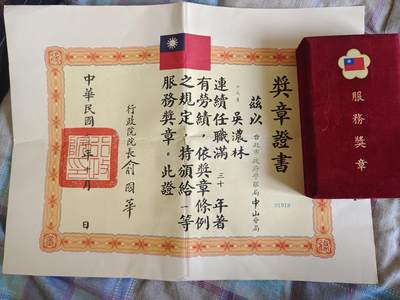 獎章證書
茲以
台北市政府警察局中山分局
吳濃林
連續任職滿三十年著
有勞績，依獎章條例
之規定，特頒給一等
服務獎章。此證
行政院院長俞國華
中華民國 年 月 日
服務獎章